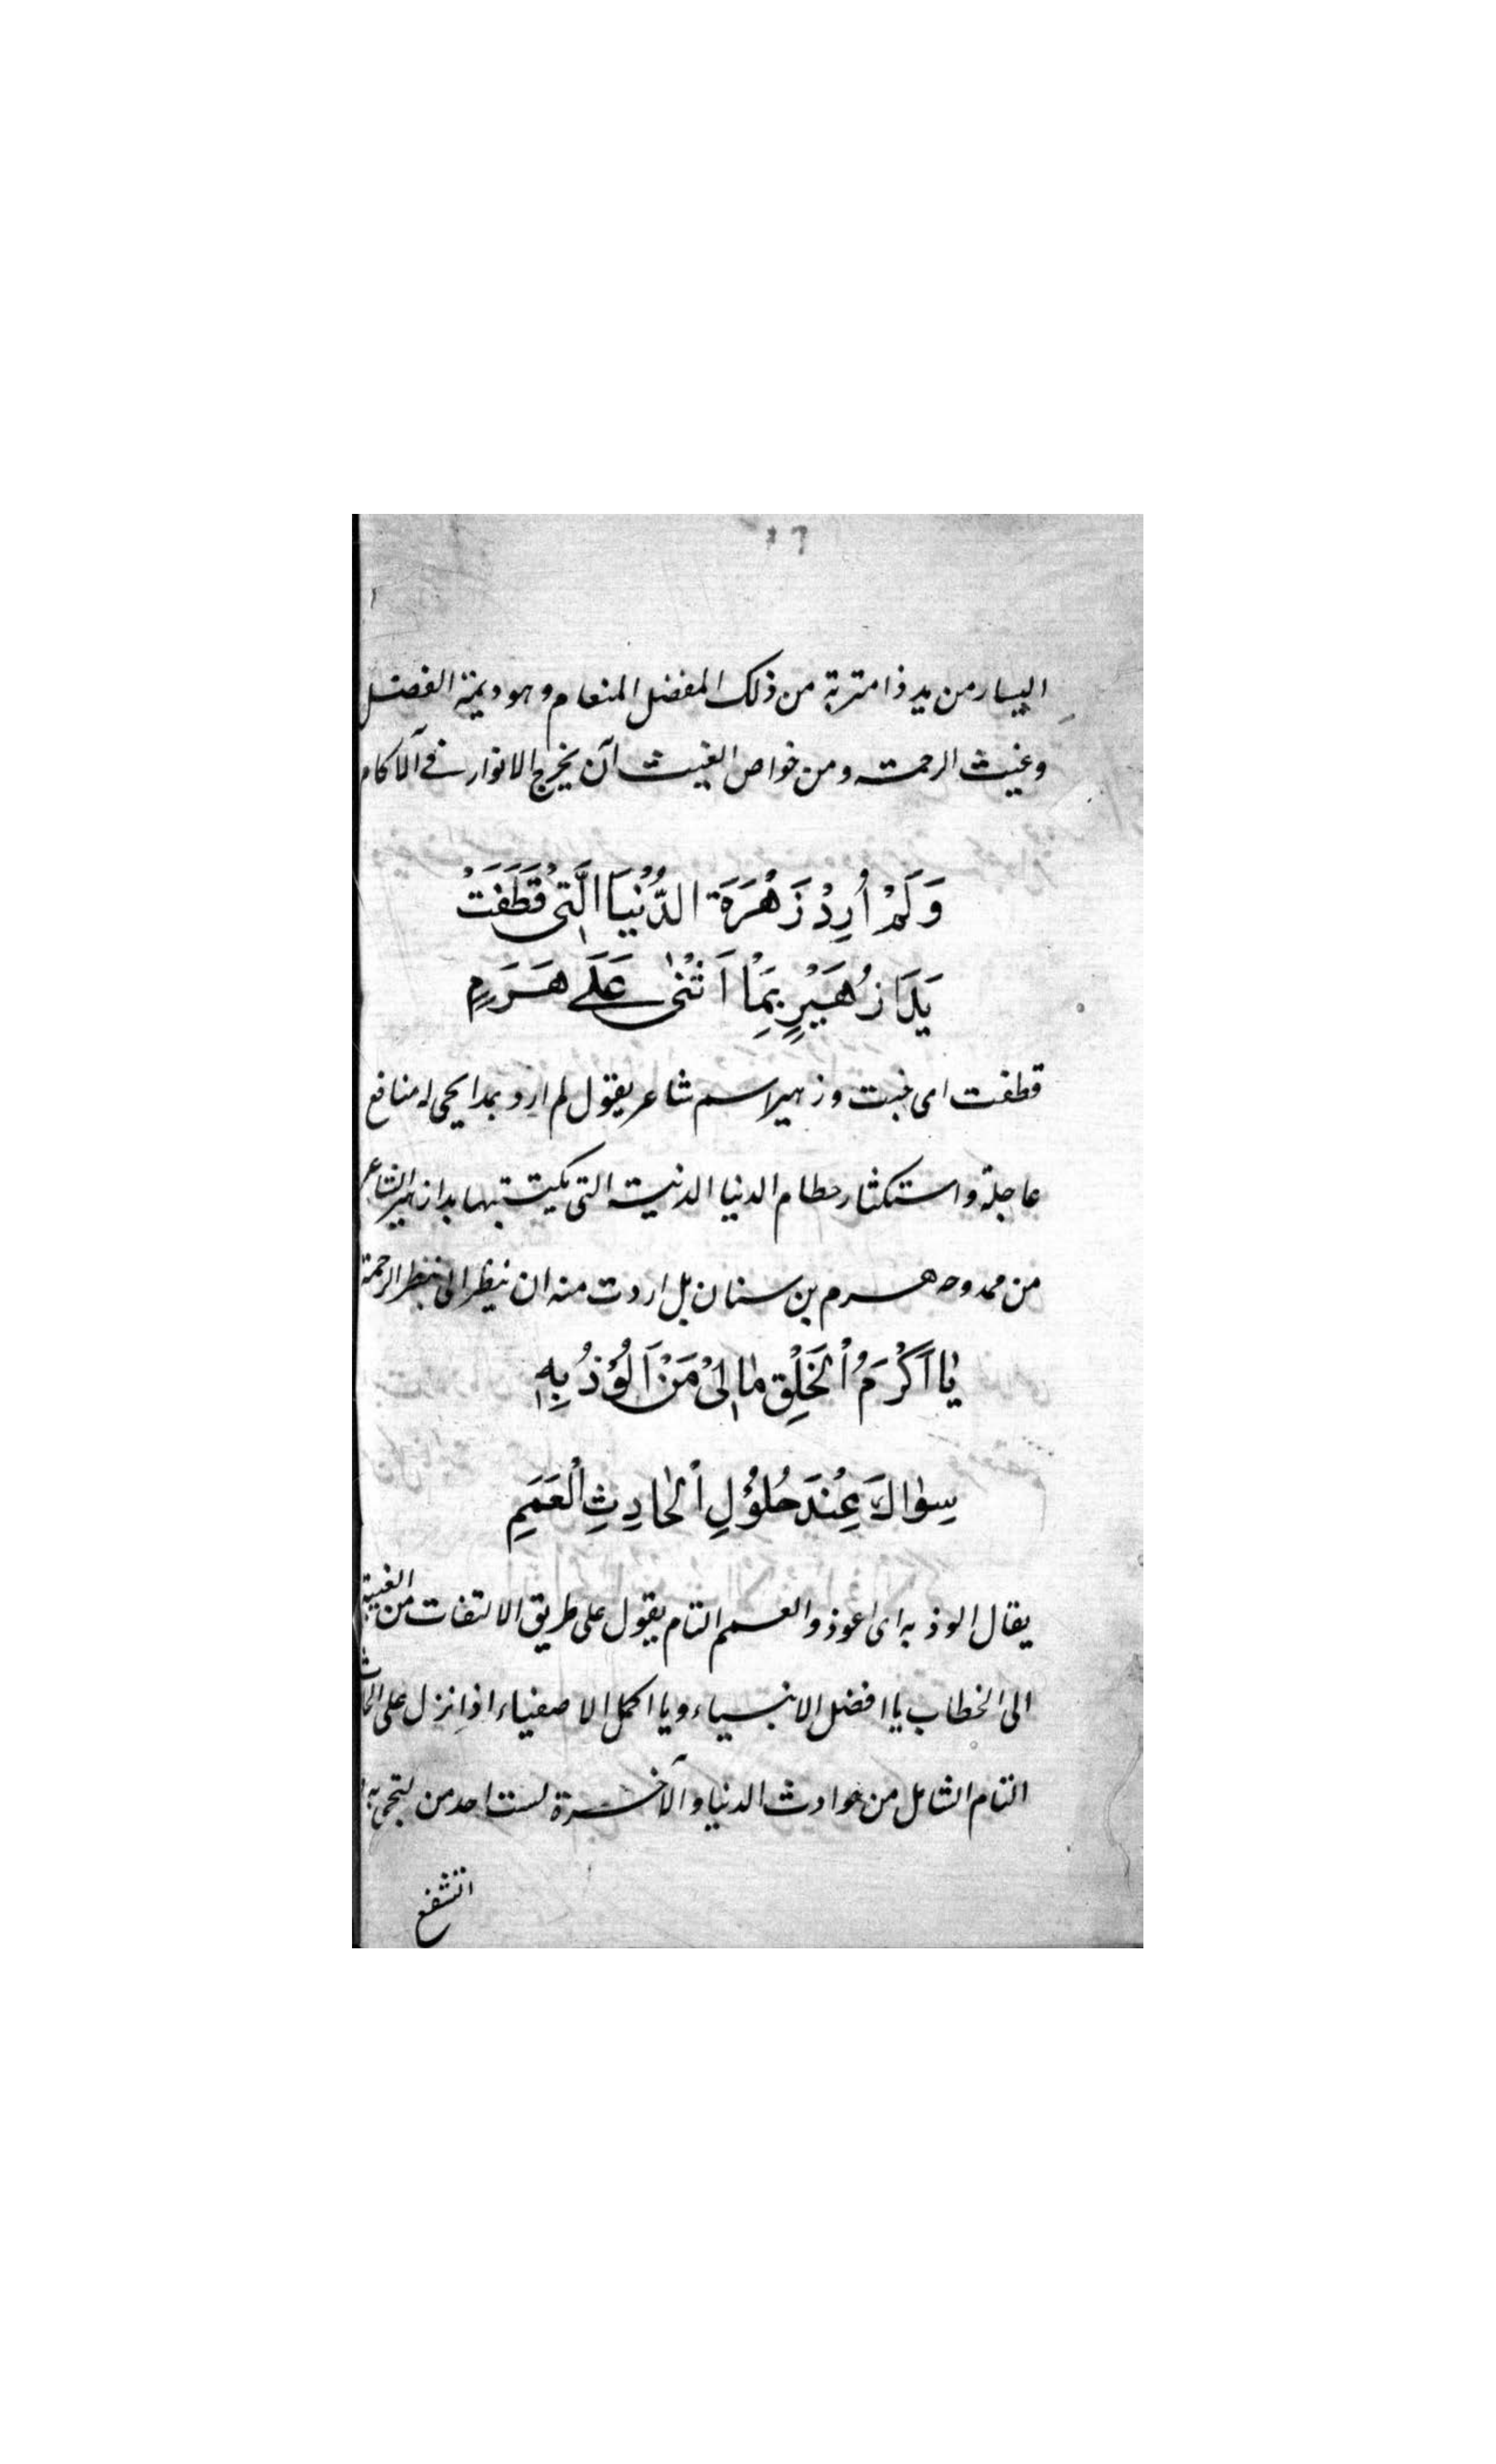 اليسار من يد ذا متربة من ذلك المفضل المنعام وهو ديمة الفضل
وغيث الرحمة ومن خواص الغيث آن يخرج الانوار فى الآكام
وَلَمْ اُرِدْ زَهْرَةَ الدُّنْيَا الَّتِى قَطَفَتْ
يَدَا زُهَيْرٍ بِمَا اَثْنٰى عَلَى هَرَمٍ
قطفت اى جنبت وزهير اسم شاعر يقول لم ارد بمدايحى له منافع
عاجلة واستكثار حطام الدنيا الدنية التى يكتسبها يدا زهير الشاعر
من ممدوحه هرم بن سنان بل اردت منه ان ينظر الى بنظر الرحمة
يٰا اَكْرَمَ اْلخَلْقِ مٰالِىْ مَنْ اَلُوْذُ بِهِ
سِوٰاكَ عِنْدَ حُلُوْلِ اْلحٰادِثِ اْلعَمَمِ
يقال الوذ به اى اعوذ والعمم التام يقول على طريق الالتفات من الغيبة
الى الخطاب يا افضل الانبياء ويا اكمل الاصفياء اذا نزل على الحادث
التام الشامل من حوادث الدنيا والآخرة لست احد من التجى به
اتشفع